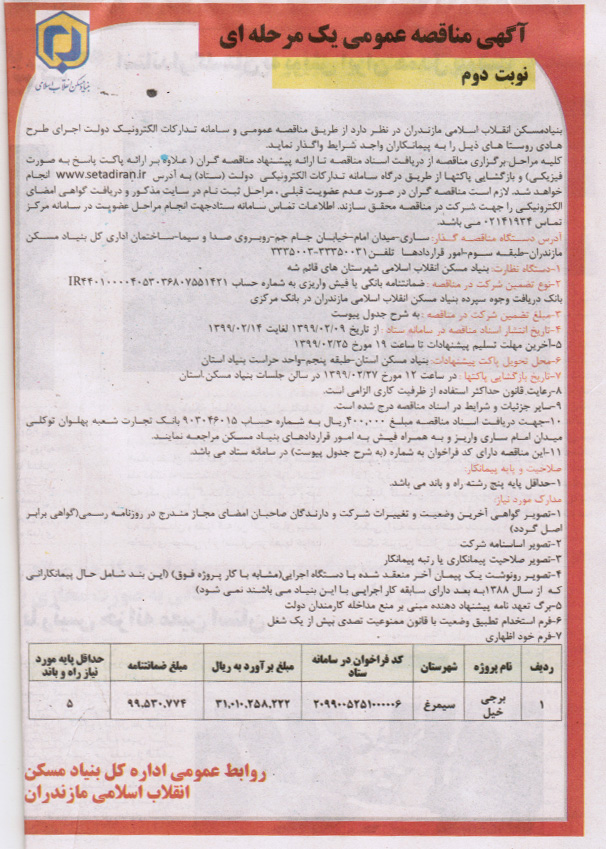 آگهی مناقصه عمومی یک مرحله ای
نوبت دوم
بنیاد مسکن انقلاب اسلامی
بنیادمسکن انقلاب اسلامی مازندران در نظر دارد از طریق مناقصه عمومی و سامانه تدارکات الکترونیک دولت اجرای طرح
هادی روستا های ذیل را به پیمانکاران واجد شرایط واگذار نماید.
کلیه مراحل برگزاری مناقصه از دریافت اسناد مناقصه تا ارائه پیشنهاد مناقصه گران ( علاوه بر ارائه پاکت پاسخ به صورت
فیزیکی) و بازگشایی پاکتها از طریق درگاه سامانه تدارکات الکترونیکی دولت (ستاد) به آدرس www.setadiran.ir انجام
خواهد شد. لازم است مناقصه گران در صورت عدم عضویت قبلی ، مراحل ثبت نام در سایت مذکور و دریافت گواهی امضای
الکترونیکی را جهت شرکت در مناقصه محقق سازند. اطلاعات تماس سامانه ستادجهت انجام مراحل عضویت در سامانه مرکز
تماس ۰۲۱۴۱۹۳۴ می باشد.
آدرس دستگاه مناقصه گذار: ساری-میدان امام-خیابان جام جم-روبروی صدا و سیما-ساختمان اداری کل بنیاد مسکن
مازندران-طبقه سوم-امور قراردادها تلفن:۳۳۳۵۰۰۳۱-۳۳۳۵۰۰۳
۱-دستگاه نظارت: بنیاد مسکن انقلاب اسلامی شهرستان های قائم شه
۲-نوع تضمین شرکت در مناقصه : ضمانتنامه بانکی یا فیش واریزی به شماره حساب IR۴۴۰۱۰۰۰۰۴۰۵۳۰۳۶۸۰۷۵۵۱۴۲۱
بانک دریافت وجوه سپرده بنیاد مسکن انقلاب اسلامی مازندران در بانک مرکزی
۳-مبلغ تضمین شرکت در مناقصه : به شرح جدول پیوست
۴-تاریخ انتشار اسناد مناقصه در سامانه ستاد : از تاریخ ۱۳۹۹/۰۲/۰۹ لغایت ۱۳۹۹/۰۲/۱۴
۵-آخرین مهلت تسلیم پیشنهادات تا ساعت ۱۹ مورخ ۱۳۹۹/۰۲/۲۵
۶-محل تحویل پاکت پیشنهادات: بنیاد مسکن استان-طبقه پنجم-واحد حراست بنیاد استان
۷-تاریخ بازگشایی پاکتها : در ساعت ۱۲ مورخ ۱۳۹۹/۰۲/۲۷ در سالن جلسات بنیاد مسکن استان
۸-رعایت قانون حداکثر استفاده از ظرفیت کاری الزامی است.
۹-سایر جزئیات و شرایط در اسناد مناقصه درج شده است.
۱۰-جهت دریافت اسناد مناقصه مبلغ ۴۰۰,۰۰۰ریال به شماره حساب ۹۰۳۰۴۶۰۱۵ بانک تجارت شعبه پهلوان توکلی
میدان امام ساری واریز و به همراه فیش به امور قراردادهای بنیاد مسکن مراجعه نمایند.
۱۱-این مناقصه دارای کد فراخوان به شماره (به شرح جدول پیوست) در سامانه ستاد می باشد.
صلاحیت و پایه پیمانکار:
۱-حداقل پایه پنج رشته راه و باند می باشد.
مدارک مورد نیاز:
۱-تصویر گواهی آخرین وضعیت و تغییرات شرکت و دارندگان صاحبان امضای مجاز مندرج در روزنامه رسمی(گواهی برابر
اصل گردد)
۲-تصویر اساسنامه شرکت
۳-تصویر صلاحیت پیمانکاری یا رتبه پیمانکار
۴-تصویر رونوشت یک پیمان آخر منعقد شده با دستگاه اجرایی(مشابه با کار پروژه فوق) (این بند شامل حال پیمانکارانی
که از سال ۱۳۸۸به بعد دارای سابقه کار اجرایی با این بنیاد می باشند نمی شود)
۵-برگ تعهد نامه پیشنهاد دهنده مبنی بر منع مداخله کارمندان دولت
۶-فرم استخدام تطبیق وضعیت با قانون ممنوعیت تصدی بیش از یک شغل
۷-فرم خود اظهاری
ردیف نام پروژه شهرستان کد فراخوان در سامانه ستاد مبلغ برآورد به ریال مبلغ ضمانتنامه حداقل پایه مورد نیاز راه و باند
۱ برجی خیل سیمرغ ۲۰۹۹۰۰۵۲۵۱۰۰۰۰۰۶ ۳۱,۰۱۰,۲۵۸,۲۲۲ ۹۹,۵۳۰,۷۷۴ ۵
روابط عمومی اداره کل بنیاد مسکن
انقلاب اسلامی مازندران